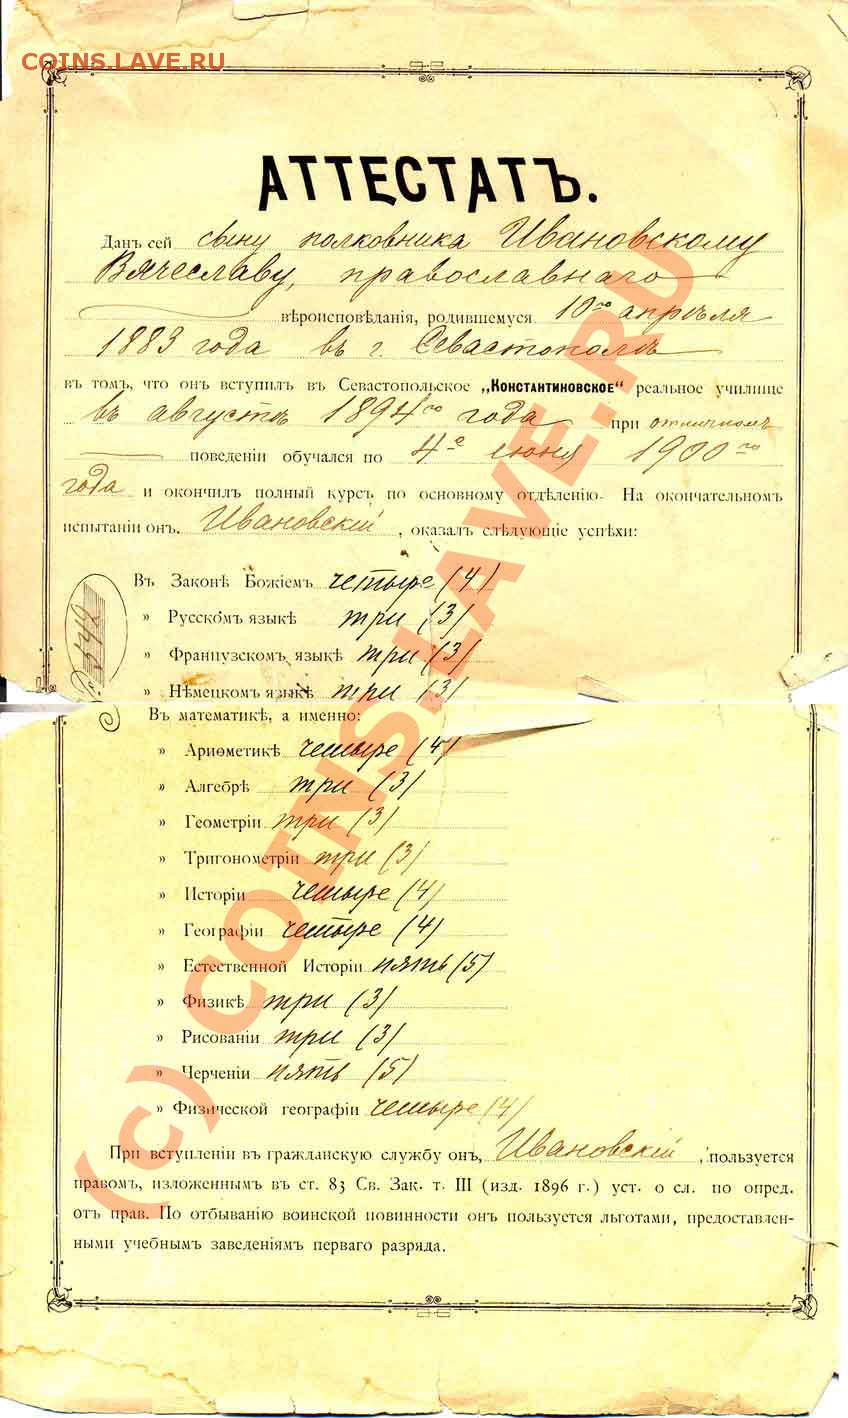 COINS.LAVE.RU
АТТЕСТАТЪ.
Данъ сей сыну полковника Ивановскому
Вячеславу, православнаго
вѣроисповѣданія, родившемуся 10го апрѣля
1883 года въ г. Севастополѣ
въ томъ, что онъ вступилъ въ Севастопольское „Константиновское" реальное училище
въ августѣ 1894го года при отличномъ
поведеніи обучался по 4е июня 1900го
года и окончилъ полный курсъ по основному отдѣленію. На окончательномъ
испытаніи онъ, Ивановскій, оказалъ слѣдующіе успѣхи:
Въ Законѣ Божіемъ четыре (4)
» Русскомъ языкѣ три (3)
» Французскомъ языкѣ три (3)
» Нѣмецкомъ языкѣ три (3)
Въ математикѣ, а именно:
» Ариѳметикѣ четыре (4)
» Алгебрѣ три (3)
» Геометріи три (3)
» Тригонометріи три (3)
» Исторіи четыре (4)
» Географіи четыре (4)
» Естественной Исторіи пять (5)
» Физикѣ три (3)
» Рисованіи три (3)
» Черченіи пять (5)
» Физической географіи четыре (4)
При вступленіи въ гражданскую службу онъ, Ивановскій, пользуется
правомъ, изложеннымъ въ ст. 83 Св. Зак. т. III (изд. 1896 г.) уст. о сл. по опред.
отъ прав. По отбыванію воинской повинности онъ пользуется льготами, предоставлен-
ными учебнымъ заведеніямъ перваго разряда.
(c) COINS.LAVE.RU